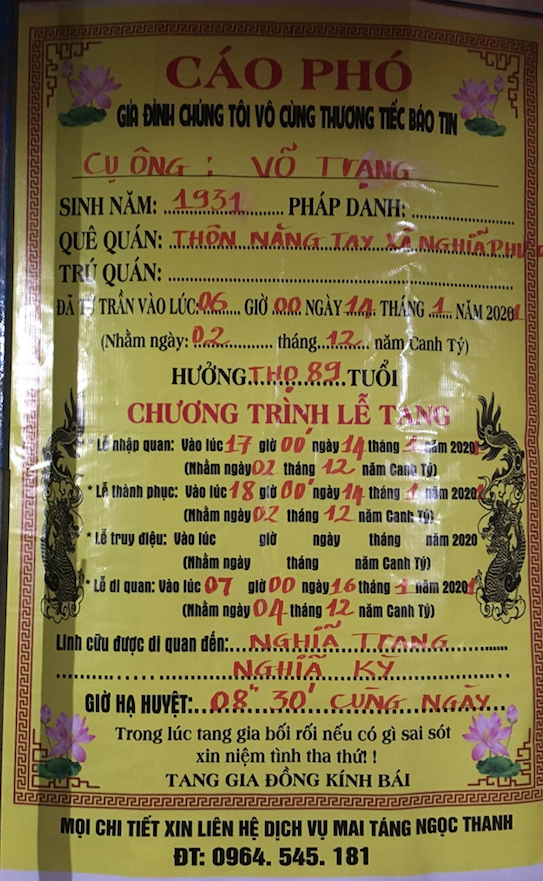 CÁO PHÓ
GIA ĐÌNH CHÚNG TÔI VÔ CÙNG THƯƠNG TIẾC BÁO TIN
CỤ ÔNG: VÕ TRẠNG
SINH NĂM: 1931 PHÁP DANH:
QUÊ QUÁN: THÔN NĂNG TAY XÃ NGHĨA
TRÚ QUÁN:
ĐÃ TỪ TRẦN VÀO LÚC: 06 GIỜ 00 NGÀY 14 THÁNG 1 NĂM 2021
(Nhằm ngày: 02 tháng 12 năm Canh Tý)
HƯỞNG THỌ 89 TUỔI
CHƯƠNG TRÌNH LỄ TANG
* Lễ nhập quan: Vào lúc 17 giờ 00' ngày 14 tháng 1 năm 2021
(Nhằm ngày 02 tháng 12 năm Canh Tý)
* Lễ thành phục: Vào lúc 18 giờ 00' ngày 14 tháng 1 năm 2021
(Nhằm ngày 02 tháng 12 năm Canh Tý)
* Lễ truy điệu: Vào lúc giờ ngày tháng năm 2020
(Nhằm ngày tháng năm Canh Tý)
* Lễ di quan: Vào lúc 07 giờ 00 ngày 16 tháng 1 năm 2021
(Nhằm ngày 04 tháng 12 năm Canh Tý)
Linh cữu được di quan đến: NGHĨA TRANG
NGHĨA KỲ
GIỜ HẠ HUYỆT: 08" 30' CÙNG NGÀY
Trong lúc tang gia bối rối nếu có gì sai sót
xin niệm tình tha thứ! !
TANG GIA ĐỒNG KÍNH BÁI
MỌI CHI TIẾT XIN LIÊN HỆ DỊCH VỤ MAI TÁNG NGỌC THANH
ĐT: 0964. 545. 181